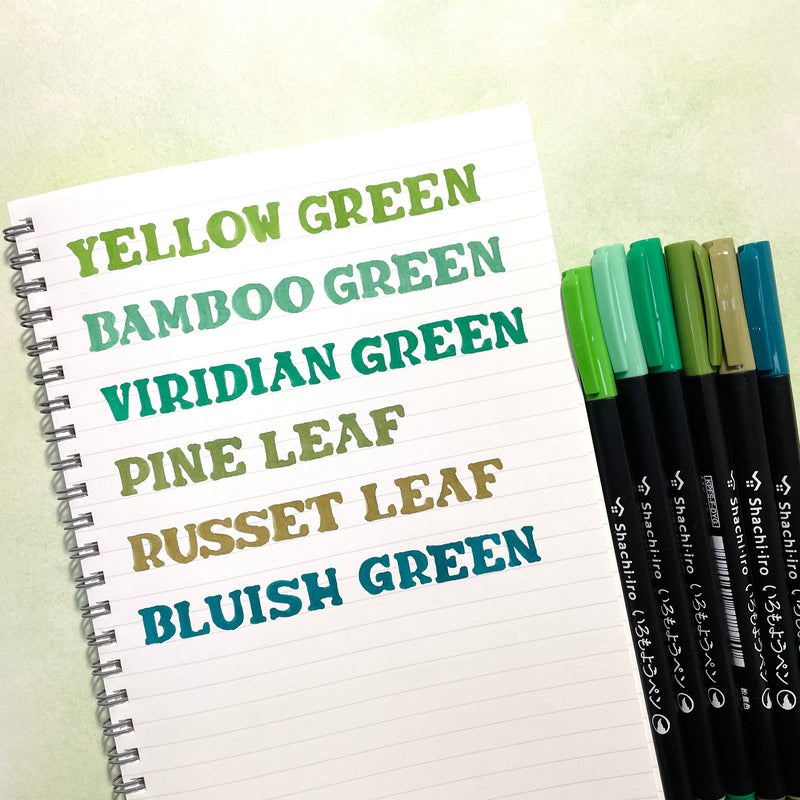 YELLOW GREEN
BAMBOO GREEN
VIRIDIAN GREEN
PINE LEAF
RUSSET LEAF
BLUISH GREEN
Shachi・iro いろもようペン
Shachi・iro いろもようペン
Shachi・iro いろもようペン
KPFS-F-DYG
Shachi・iro いろもようペン
Shachi・iro いろもようペン